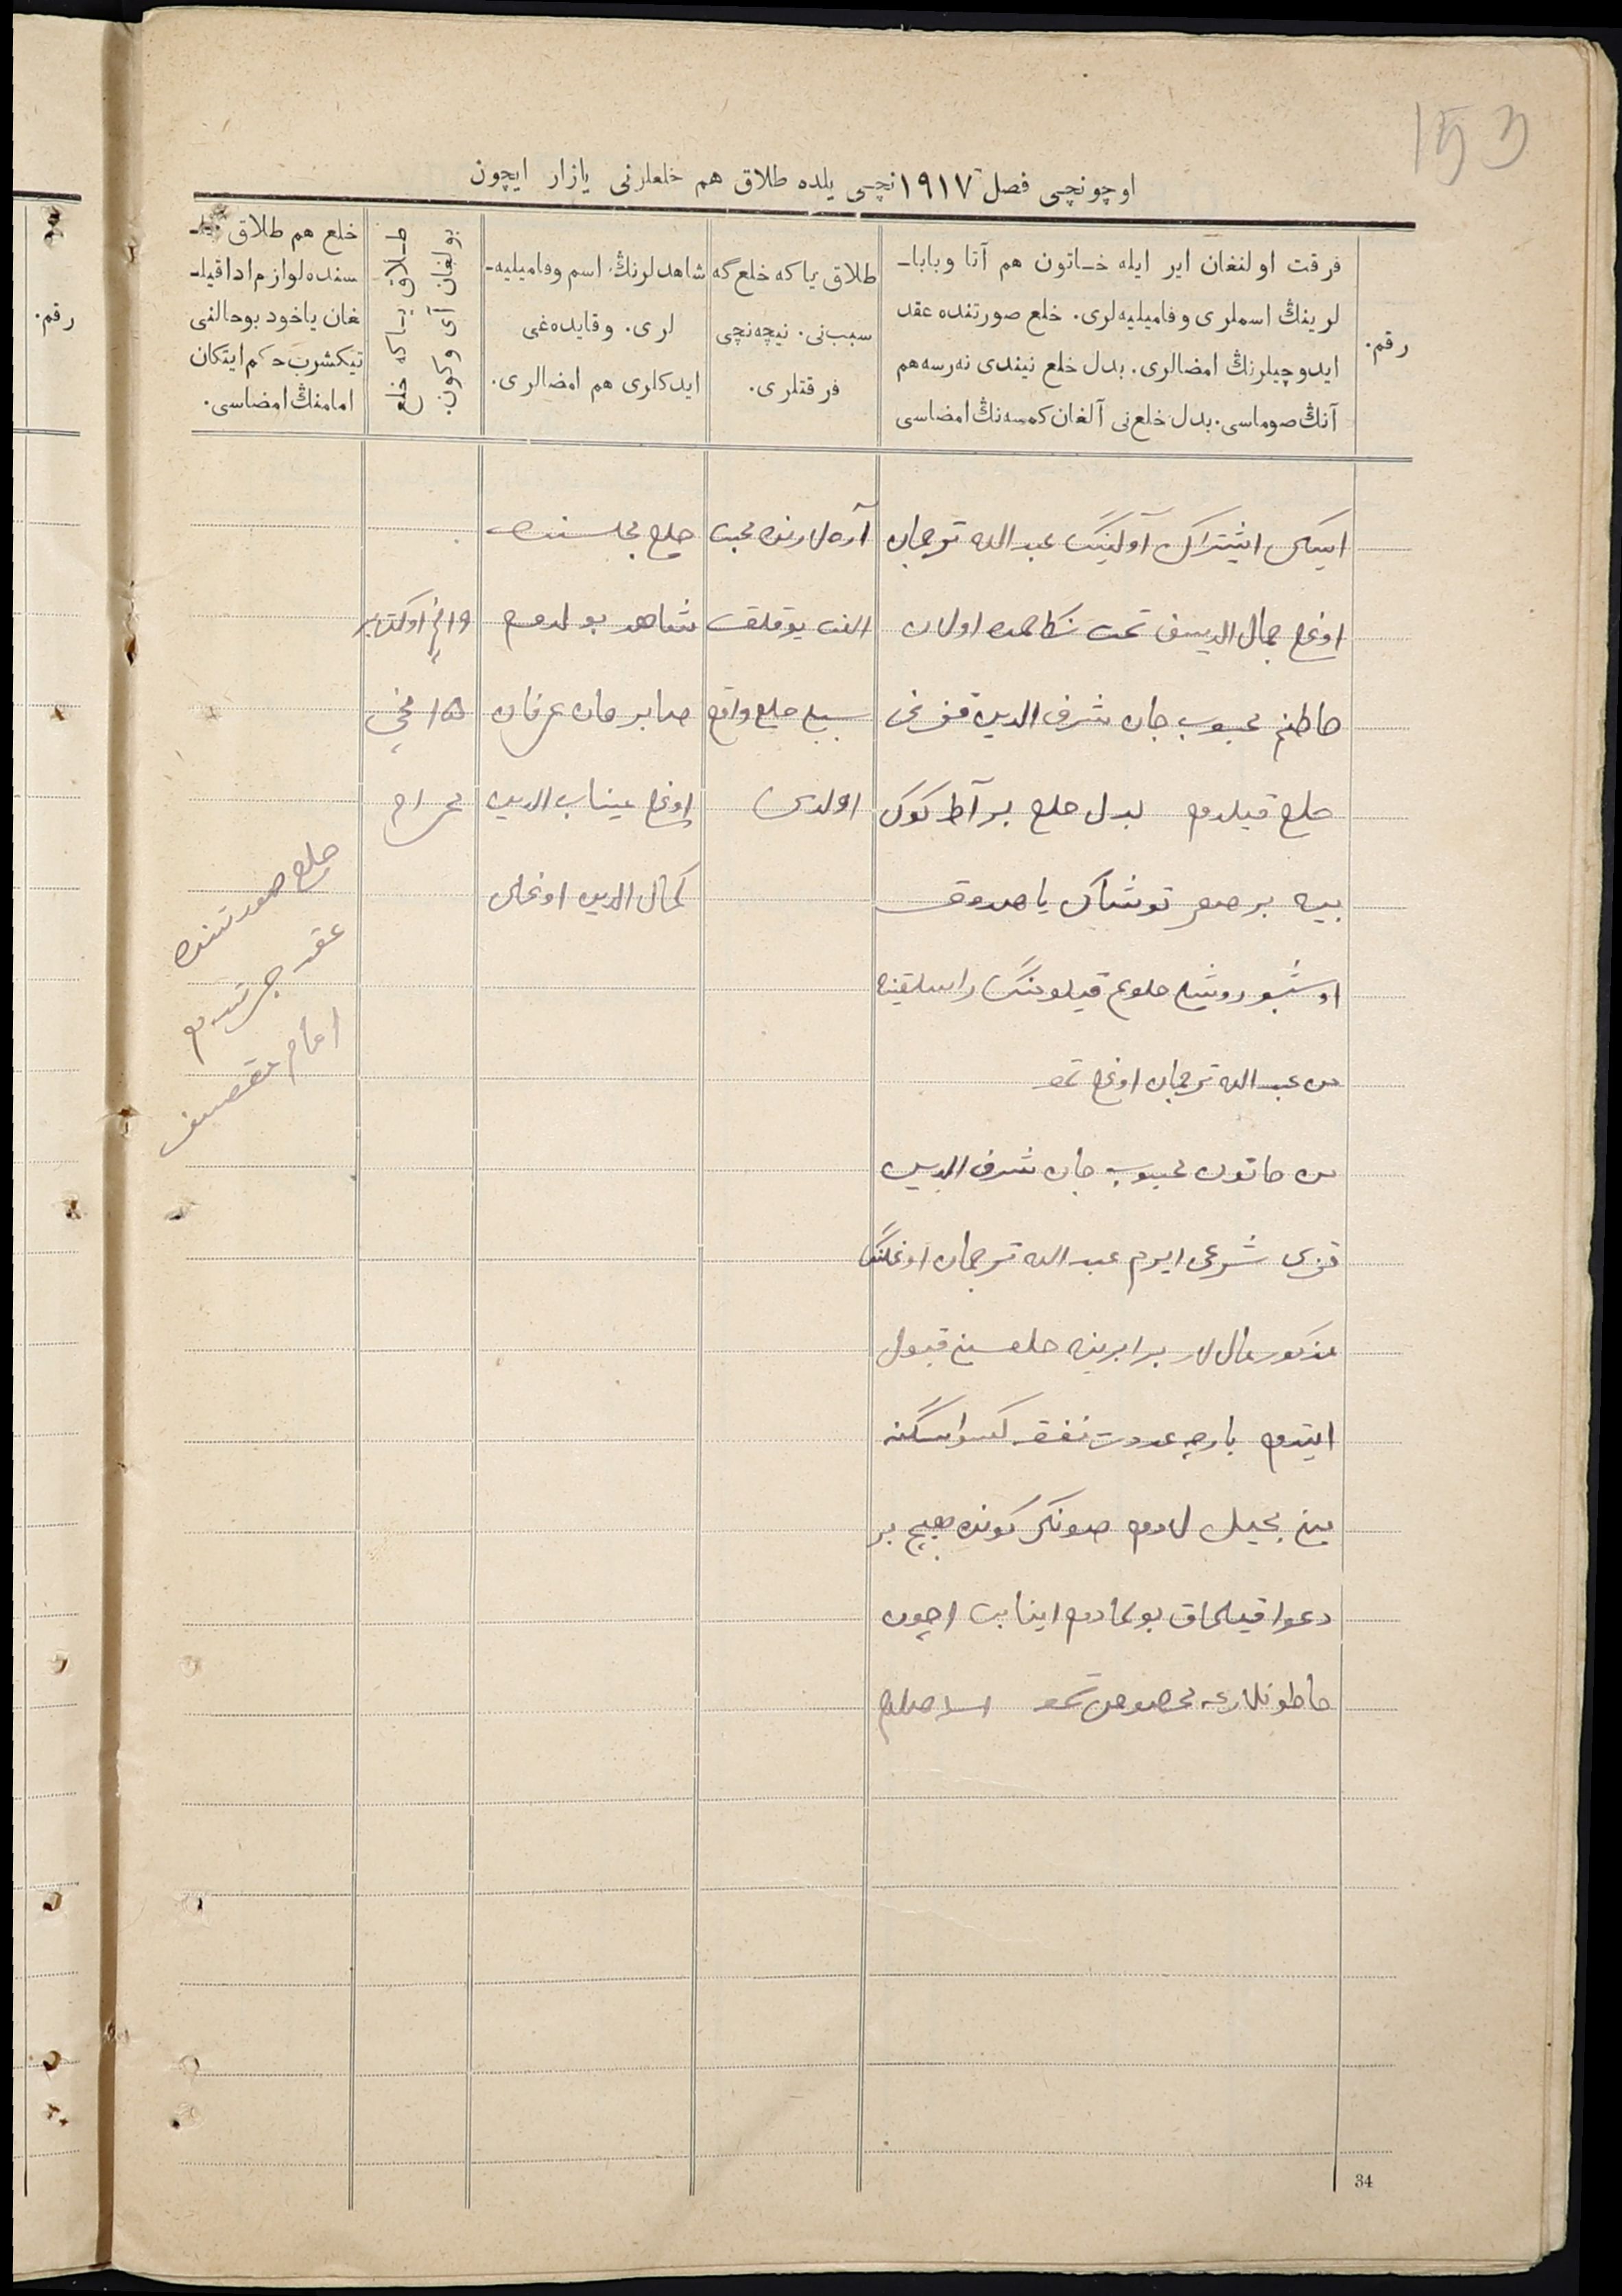 153
اوچونچی فصل ۱۹۱۷نچی یلده طلاق هم خلعلرنی یازار ایچون
رقم.
فرقت اولنغان ایر ایله خاتون هم آتا وبابا-
لرینڭ اسملری وفامیلیه‌لری. خلع صورتنده عقد
ایدوچیلرنڭ امضالری. بدل خلع نیندی نه‌رسه هم
آنڭ صوماسی. بدل خلع‌نی آلغان کمسه‌نڭ امضاسی
طلاق یاکه خلع‌گه
سبب‌نی. نیچه‌نچی
فرقتلری.
شاهدلرنڭ اسم وفامیلیه-
لری. وقایده‌غی
ایدکلری هم امضالری.
طلاق یاکه خلع
بولغان آی وکون.
خلع هم طلاق
سنده لوازم ادا قیل-
غان یاخود بوحالنی
تیکشرب حکم ایتکان
امامنڭ امضاسی.
رقم.
ایسکی اشتراک آولینک عبد الله ترجمان
اوغلی جمال الدینف تحت نکاحمده اولان
خاطنم محبوب جان شرف الدین قزینی
خلع قیلدم بدل خلع بر آط کوک
بیه بر توشاک یا صدوق
اوشبو روشلی قیلومننک راسلقینه
من عبد الله ترجمان اوغلی
من خاتون محبوب جان شرف الدین
قزی شرعی ایرم عبد الله ترجمان اوغلننک
مذکور مال لار برابرینه خلعسین قبول
ایتدم بارچه عدت نفقه
صونک کونده هیچ بر
دعوا قیلماق بولمادم اینانب اچون
آره لارنده محبت
الفت یوقلق
سببلی خلع واقع
اولدی
خلع مجلسنده
شاهد بولدم
صابر جان عرفان
اوغلی عیناب الدین
کمال الدین اوغلی
۱۹نچی اوکتابر
۱۵نچی
محرام
خلع صورتنده
عقد
امام
34